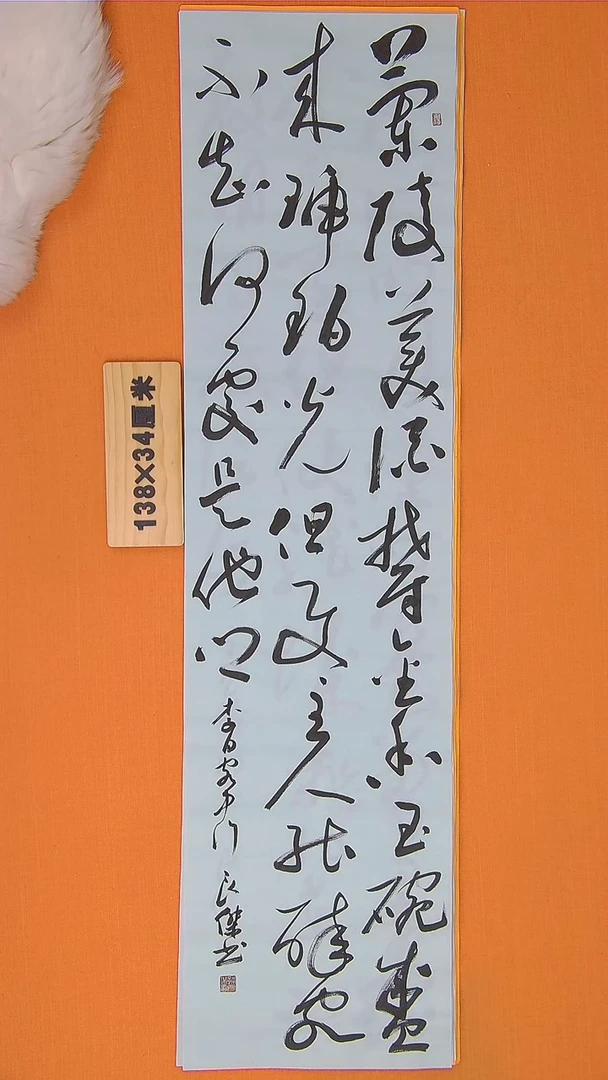 蘭陵美酒鬱金香玉碗盛
来琥珀光但使主人能醉客
不知何處是他鄉
李白客中行 良傑書
138×34厘米